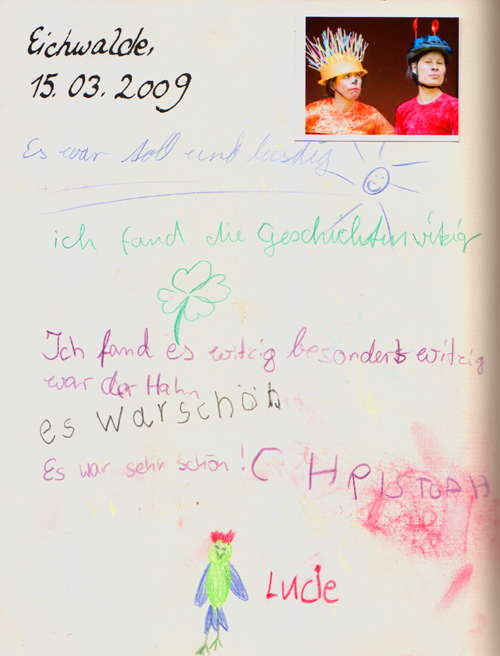 Eichwalde,
15.03.2009
Es war toll und lustig
ich fand die Geschichten witzig
Ich fand es witzig besonders witzig
war der Hahn
es war schön
Es war sehr schön! CHRISTOPH
Lucie